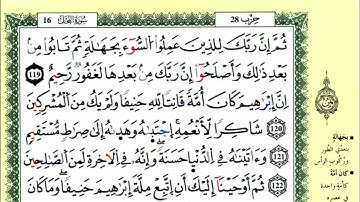 سُورَةُ النَّحْلِ 16
حِزْبُ 28
ثُمَّ إِنَّ رَبَّكَ لِلَّذِينَ عَمِلُوا۟ السُّوٓءَ بِجَهَٰلَةٍ ثُمَّ تَابُوا۟ مِنۢ
بَعْدِ ذَٰلِكَ وَأَصْلَحُوٓا۟ إِنَّ رَبَّكَ مِنۢ بَعْدِهَا لَغَفُورٌ رَّحِيمٌ 119
إِنَّ إِبْرَٰهِيمَ كَانَ أُمَّةً قَانِتًا لِّلهِ حَنِيفًا وَلَمْ يَكُ مِنَ ٱلْمُشْرِكِينَ
120 شَاكِرًا لِّأَنْعُمِهِ ٱجْتَبَىٰهُ وَهَدَىٰهُ إِلَىٰ صِرَٰطٍ مُّسْتَقِيمٍ
121 وَءَاتَيْنَٰهُ فِے ٱلدُّنْيَا حَسَنَةً وَإِنَّهُۥ فِے ٱلْأَخِرَةِ لَمِنَ ٱلصَّٰلِحِينَ
122 ثُمَّ أَوْحَيْنَآ إِلَيْكَ أَنِ ٱتَّبِعْ مِلَّةَ إِبْرَٰهِيمَ حَنِيفًا وَمَا كَانَ
بِجَهَالَةٍ
بِتَعَدِّي الطَّوْرِ
وَرُكُوبِ الرَّأْسِ
كَانَ أُمَّةً
كَأُمَّةٍ وَاحِدَةٍ
فِي عَصْرِهِ